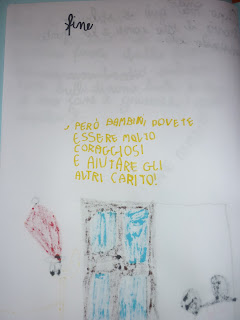 fine
, PERÒ BAMBINI, DOVETE
ESSERE MOLTO
CORAGGIOSI
E AIUTARE GLI
ALTRI CAPITO!